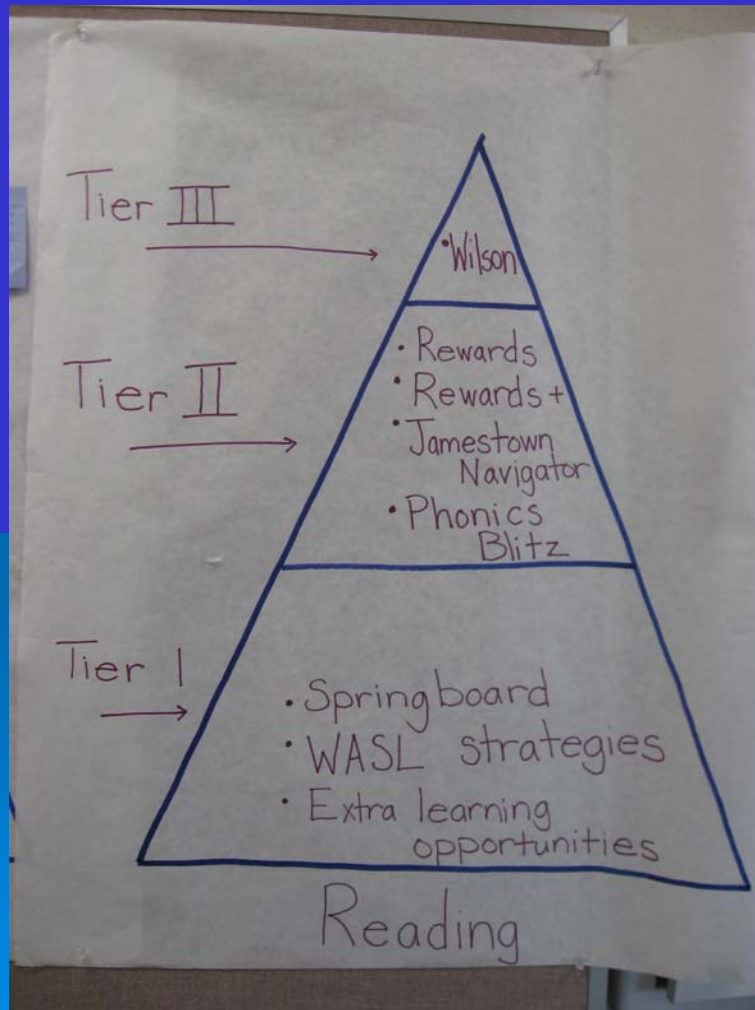 Tier III
• Wilson
Tier II
• Rewards
• Rewards +
• Jamestown
Navigator
• Phonics
Blitz
Tier 1
• Springboard
• WASL strategies
• Extra learning
opportunities
Reading